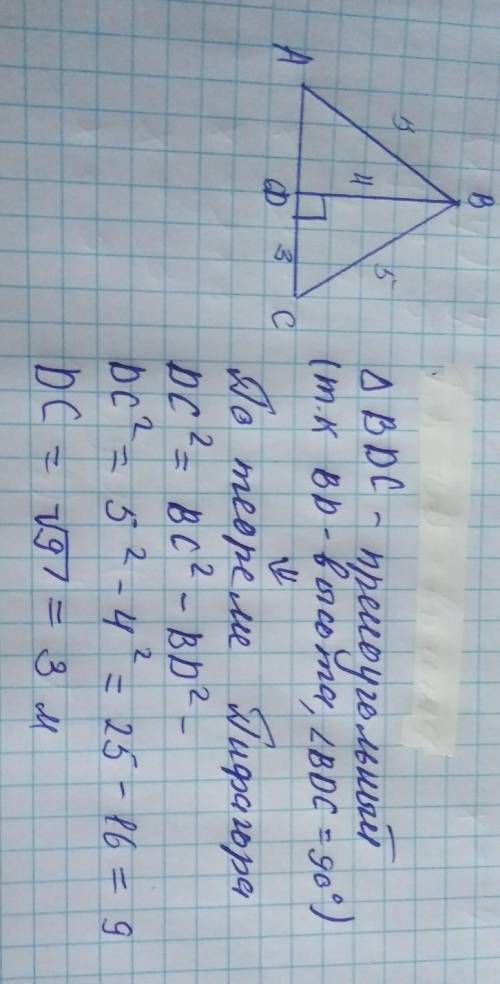 B
5
5
4
A
D
3
C
Δ BDC - прямоугольный
(т.к BD - высота, ∠BDC = 90°)
По теореме Пифагора
DC² = BC² - BD² -
DC² = 5² - 4² = 25 - 16 = 9
DC = √9 = 3 м